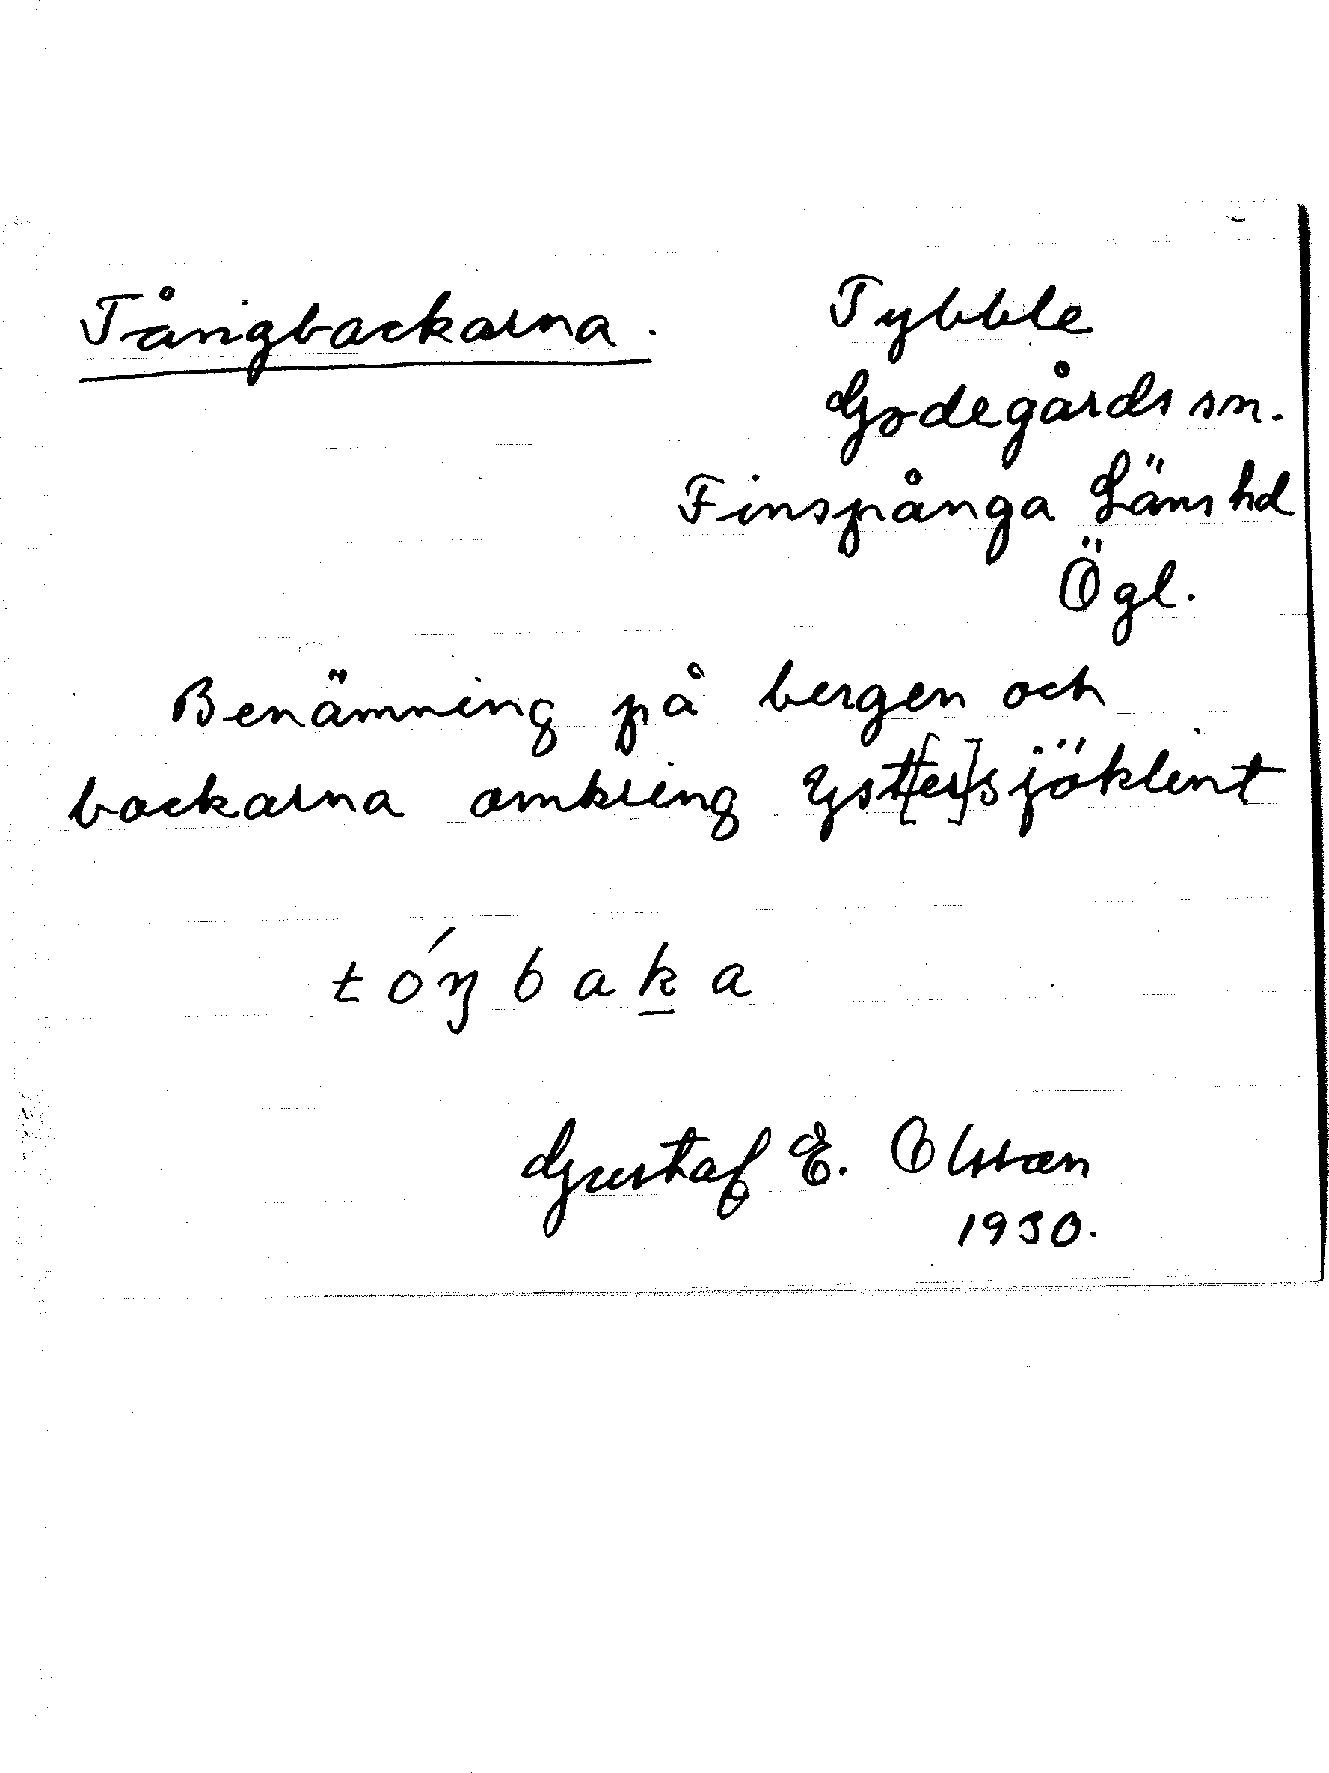 Tångbackarna.
Tybble
Godegårds sn.
Finspånga Läns hd
Ögl.
Benämning på bergen och
backarna omkring Yst[ter]sjöklint
tóŋbaka
Gustaf E. Olsson
1930.